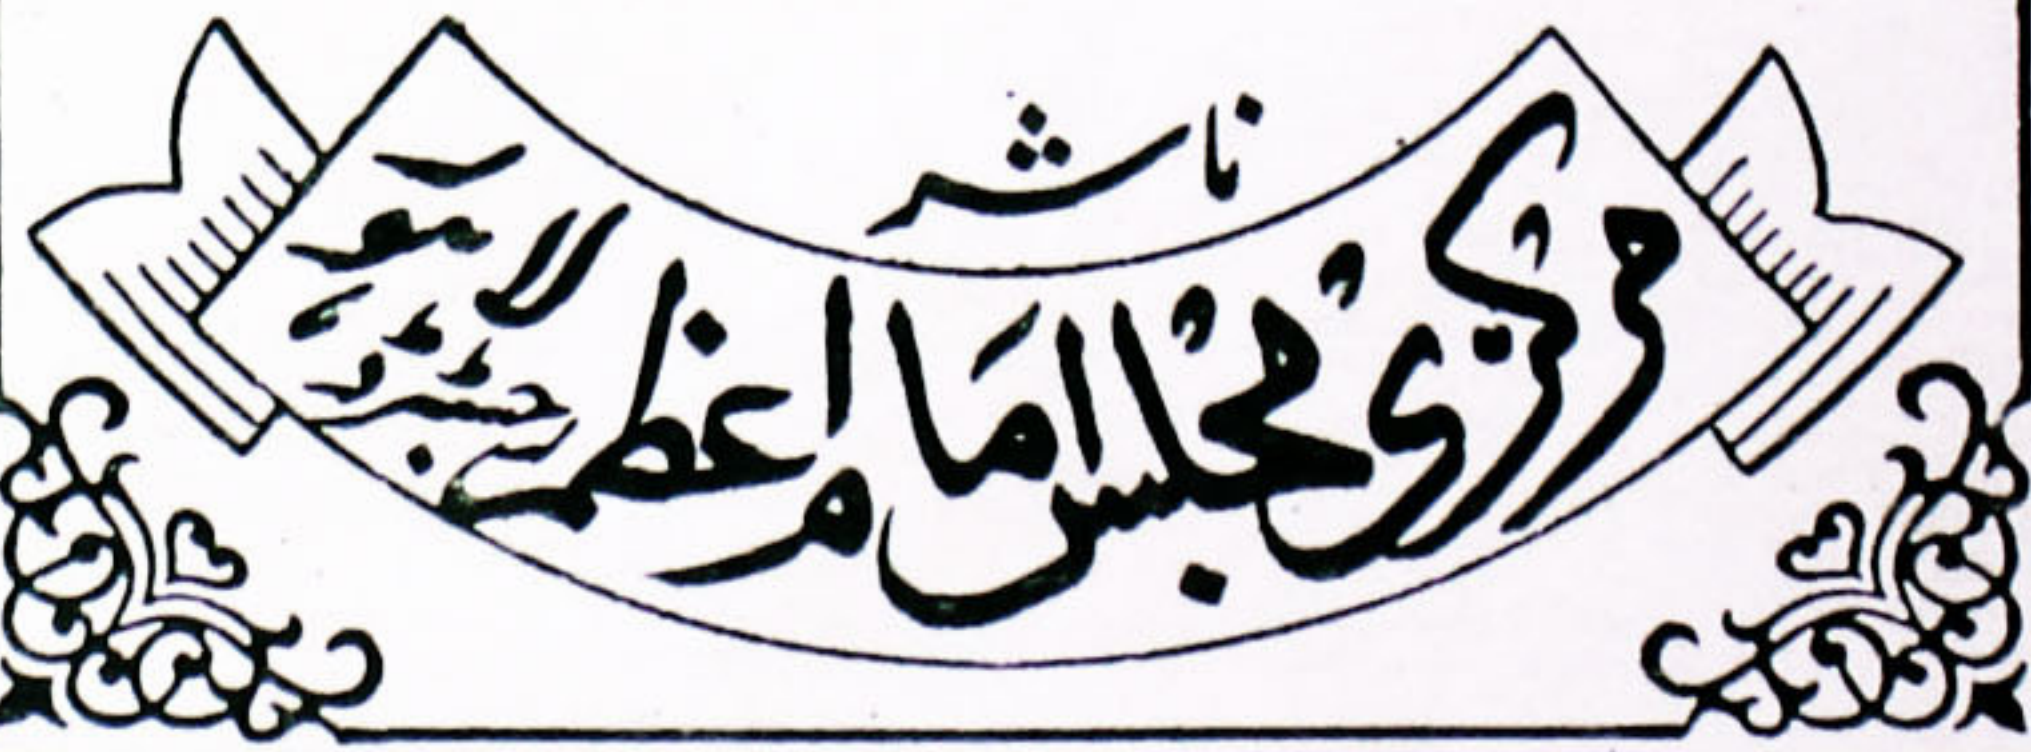 ناشر
مرکزی مجلس امام اعظم رجسٹرڈ لاہور